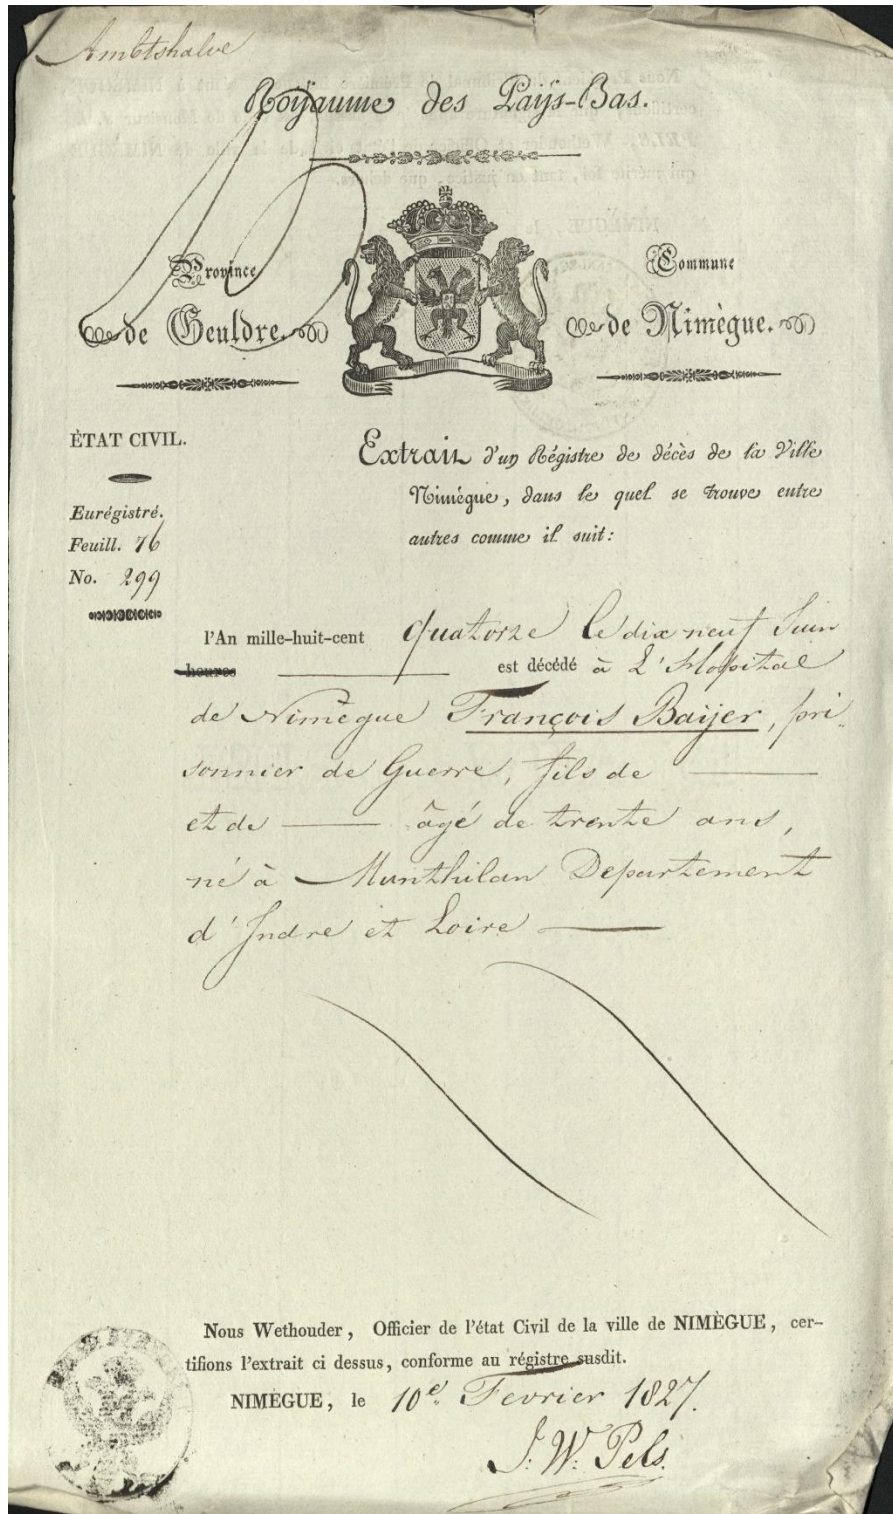 Ambtshalve
Royaume des Païjs-Bas.
Province
de Geuldre.
Commune
de Nimègue.
ÉTAT CIVIL.
Eurégistré.
Feuill. 76
No. 299
Extrait d'un Régistre de décès de la Ville
Nimégue, dans le quel se trouve entre
autres comme il suit:
l'An mille-huit-cent quatorze le dix neuf Juin
heures est décédé à L'Hopital
de Nimègue François Baijer, pri-
sonnier de Guerre, fils de
et de âgé de trente ans,
né à Munthilan Departement
d'Indre et Loire
Nous Wethouder, Officier de l'état Civil de la ville de NIMÈGUE, cer-
tifions l'extrait ci dessus, conforme au régistre susdit.
NIMÈGUE, le 10e. Fevrier 1827.
J. W. Pels.